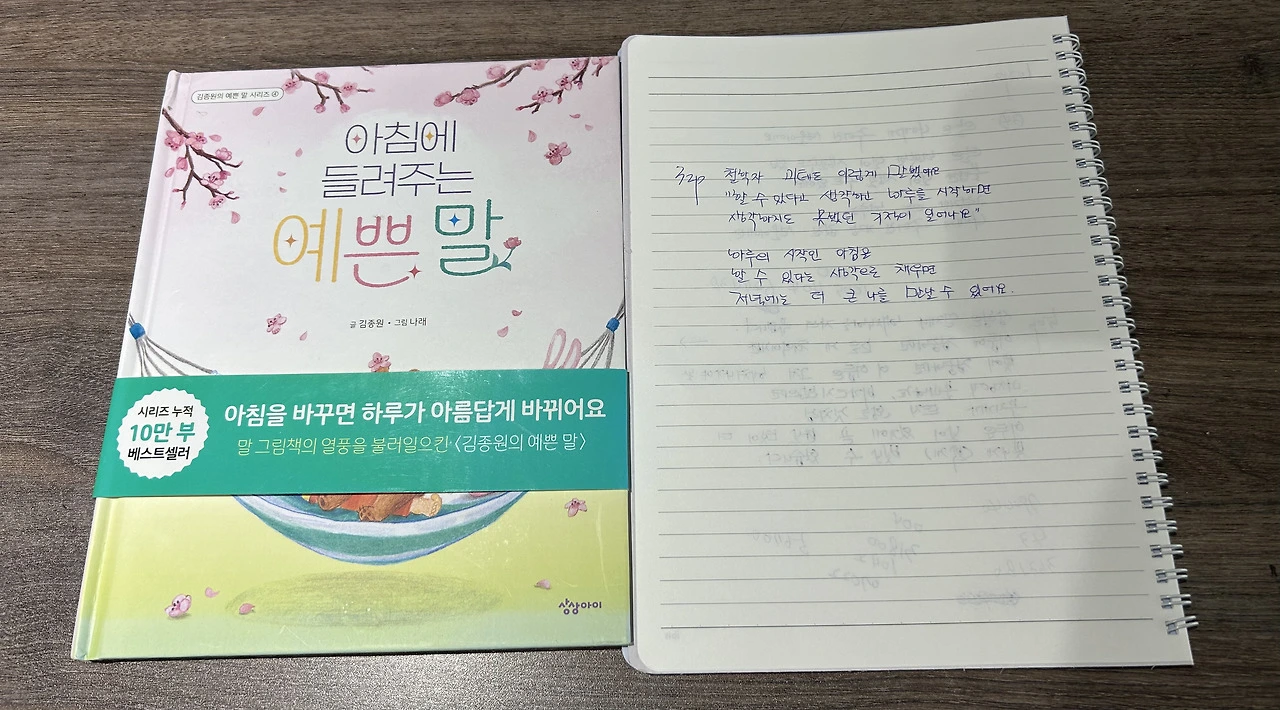 김종원의 예쁜 말 시리즈 ④
아침에
들려주는
예쁜 말
글 김종원 • 그림 나래
시리즈 누적
10만 부
베스트셀러
아침을 바꾸면 하루가 아름답게 바뀌어요
말 그림책의 열풍을 불러일으킨 〈김종원의 예쁜 말〉
상상아이
32p 철학자 괴테는 이렇게 말했어요
"할 수 있다고 생각하고 하루를 시작하면
생각하지도 못했던 기적이 일어나요"
하루의 시작인 아침을
할 수 있다는 생각으로 채우면
저녁에는 더 큰 나를 만날 수 있어요.